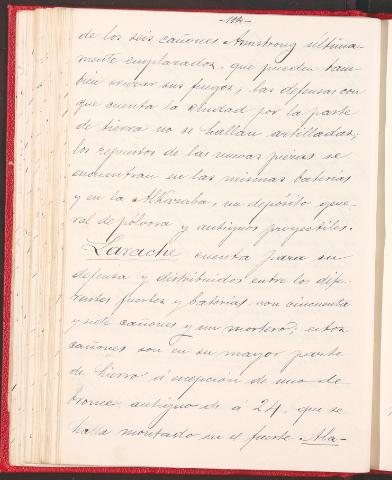 de los seis cañones Armstrong última-
mente emplazados, que pueden tam-
bién cruzar sus fuegos; las defensas con
que cuenta la ciudad por la parte
de tierra no se hallan artilladas;
los repuestos de las nuevas piezas se
encuentran en las mismas baterías
y en la Alkazaba, un depósito gene-
ral de pólvora y antiguos proyectiles.
Larache cuenta para su
defensa y distribuidos entre los dife-
rentes fuertes y baterías con cincuenta
y siete cañones y un mortero; estos
cañones son en su mayor parte
de hierro á excepción de uno de
bronce, antiguo de á 24, que se
halla montado en el fuerte Ala-